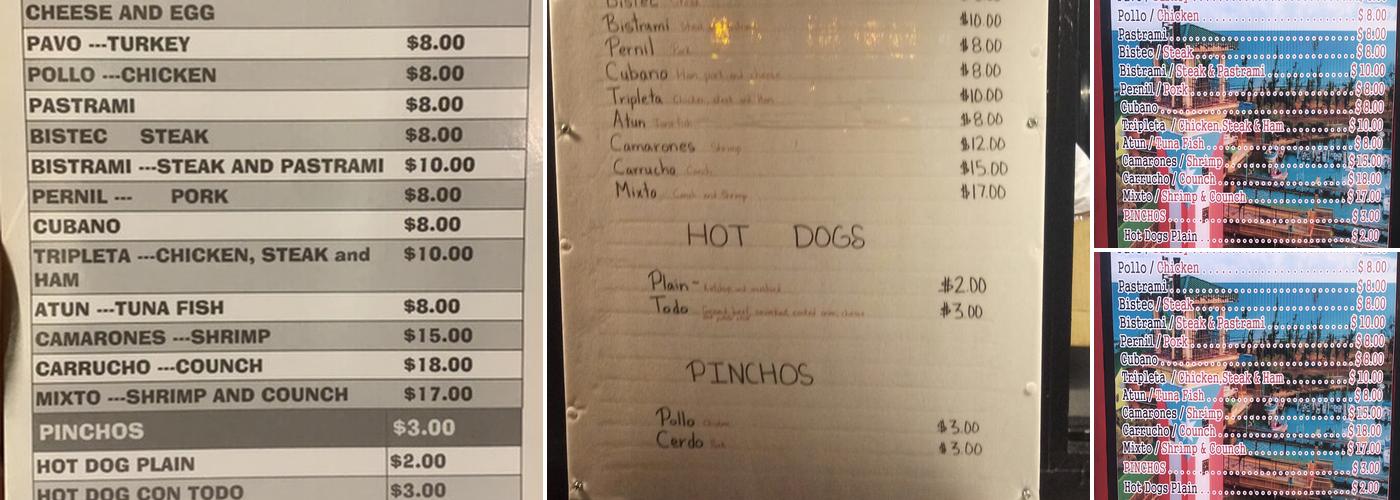 CHEESE AND EGG
PAVO ---TURKEY $8.00
POLLO ---CHICKEN $8.00
PASTRAMI $8.00
BISTEC STEAK $8.00
BISTRAMI ---STEAK AND PASTRAMI $10.00
PERNIL --- PORK $8.00
CUBANO $8.00
TRIPLETA ---CHICKEN, STEAK and $10.00
HAM
ATUN ---TUNA FISH $8.00
CAMARONES ---SHRIMP $15.00
CARRUCHO ---COUNCH $18.00
MIXTO ---SHRIMP AND COUNCH $17.00
PINCHOS $3.00
HOT DOG PLAIN $2.00
HOT DOG CON TODO $3.00
Bistec
Bistrami $10.00
Pernil Pork $8.00
Cubano Ham, pork and cheese $8.00
Tripleta Chicken, steak and Ham $10.00
Atun Tuna fish $8.00
Camarones Shrimp $12.00
Carrucho Conch $15.00
Mixto Conch and Shrimp $17.00
HOT DOGS
Plain - Ketchup and mustard $2.00
Todo $3.00
PINCHOS
Pollo Chicken $3.00
Cerdo Pork $3.00
Pollo / Chicken $ 8.00
Pastrami $ 8.00
Bistec / Steak $ 8.00
Bistrami / Steak & Pastrami $ 10.00
Pernil / Pork $ 8.00
Cubano $ 8.00
Tripleta / Chicken,Steak & Ham $ 10.00
Atun / Tuna Fish $ 8.00
Camarones / Shrimp $ 15.00
Carrucho / Counch $ 18.00
Mixto / Shrimp & Counch $ 17.00
PINCHOS $ 3.00
Hot Dogs Plain $ 2.00
Pollo / Chicken $ 8.00
Pastrami $ 8.00
Bistec / Steak $ 8.00
Bistrami / Steak & Pastrami $ 10.00
Pernil / Pork $ 8.00
Cubano $ 8.00
Tripleta / Chicken,Steak & Ham $ 10.00
Atun / Tuna Fish $ 8.00
Camarones / Shrimp $ 15.00
Carrucho / Counch $ 18.00
Mixto / Shrimp & Counch $ 17.00
PINCHOS $ 3.00
Hot Dogs Plain $ 2.00